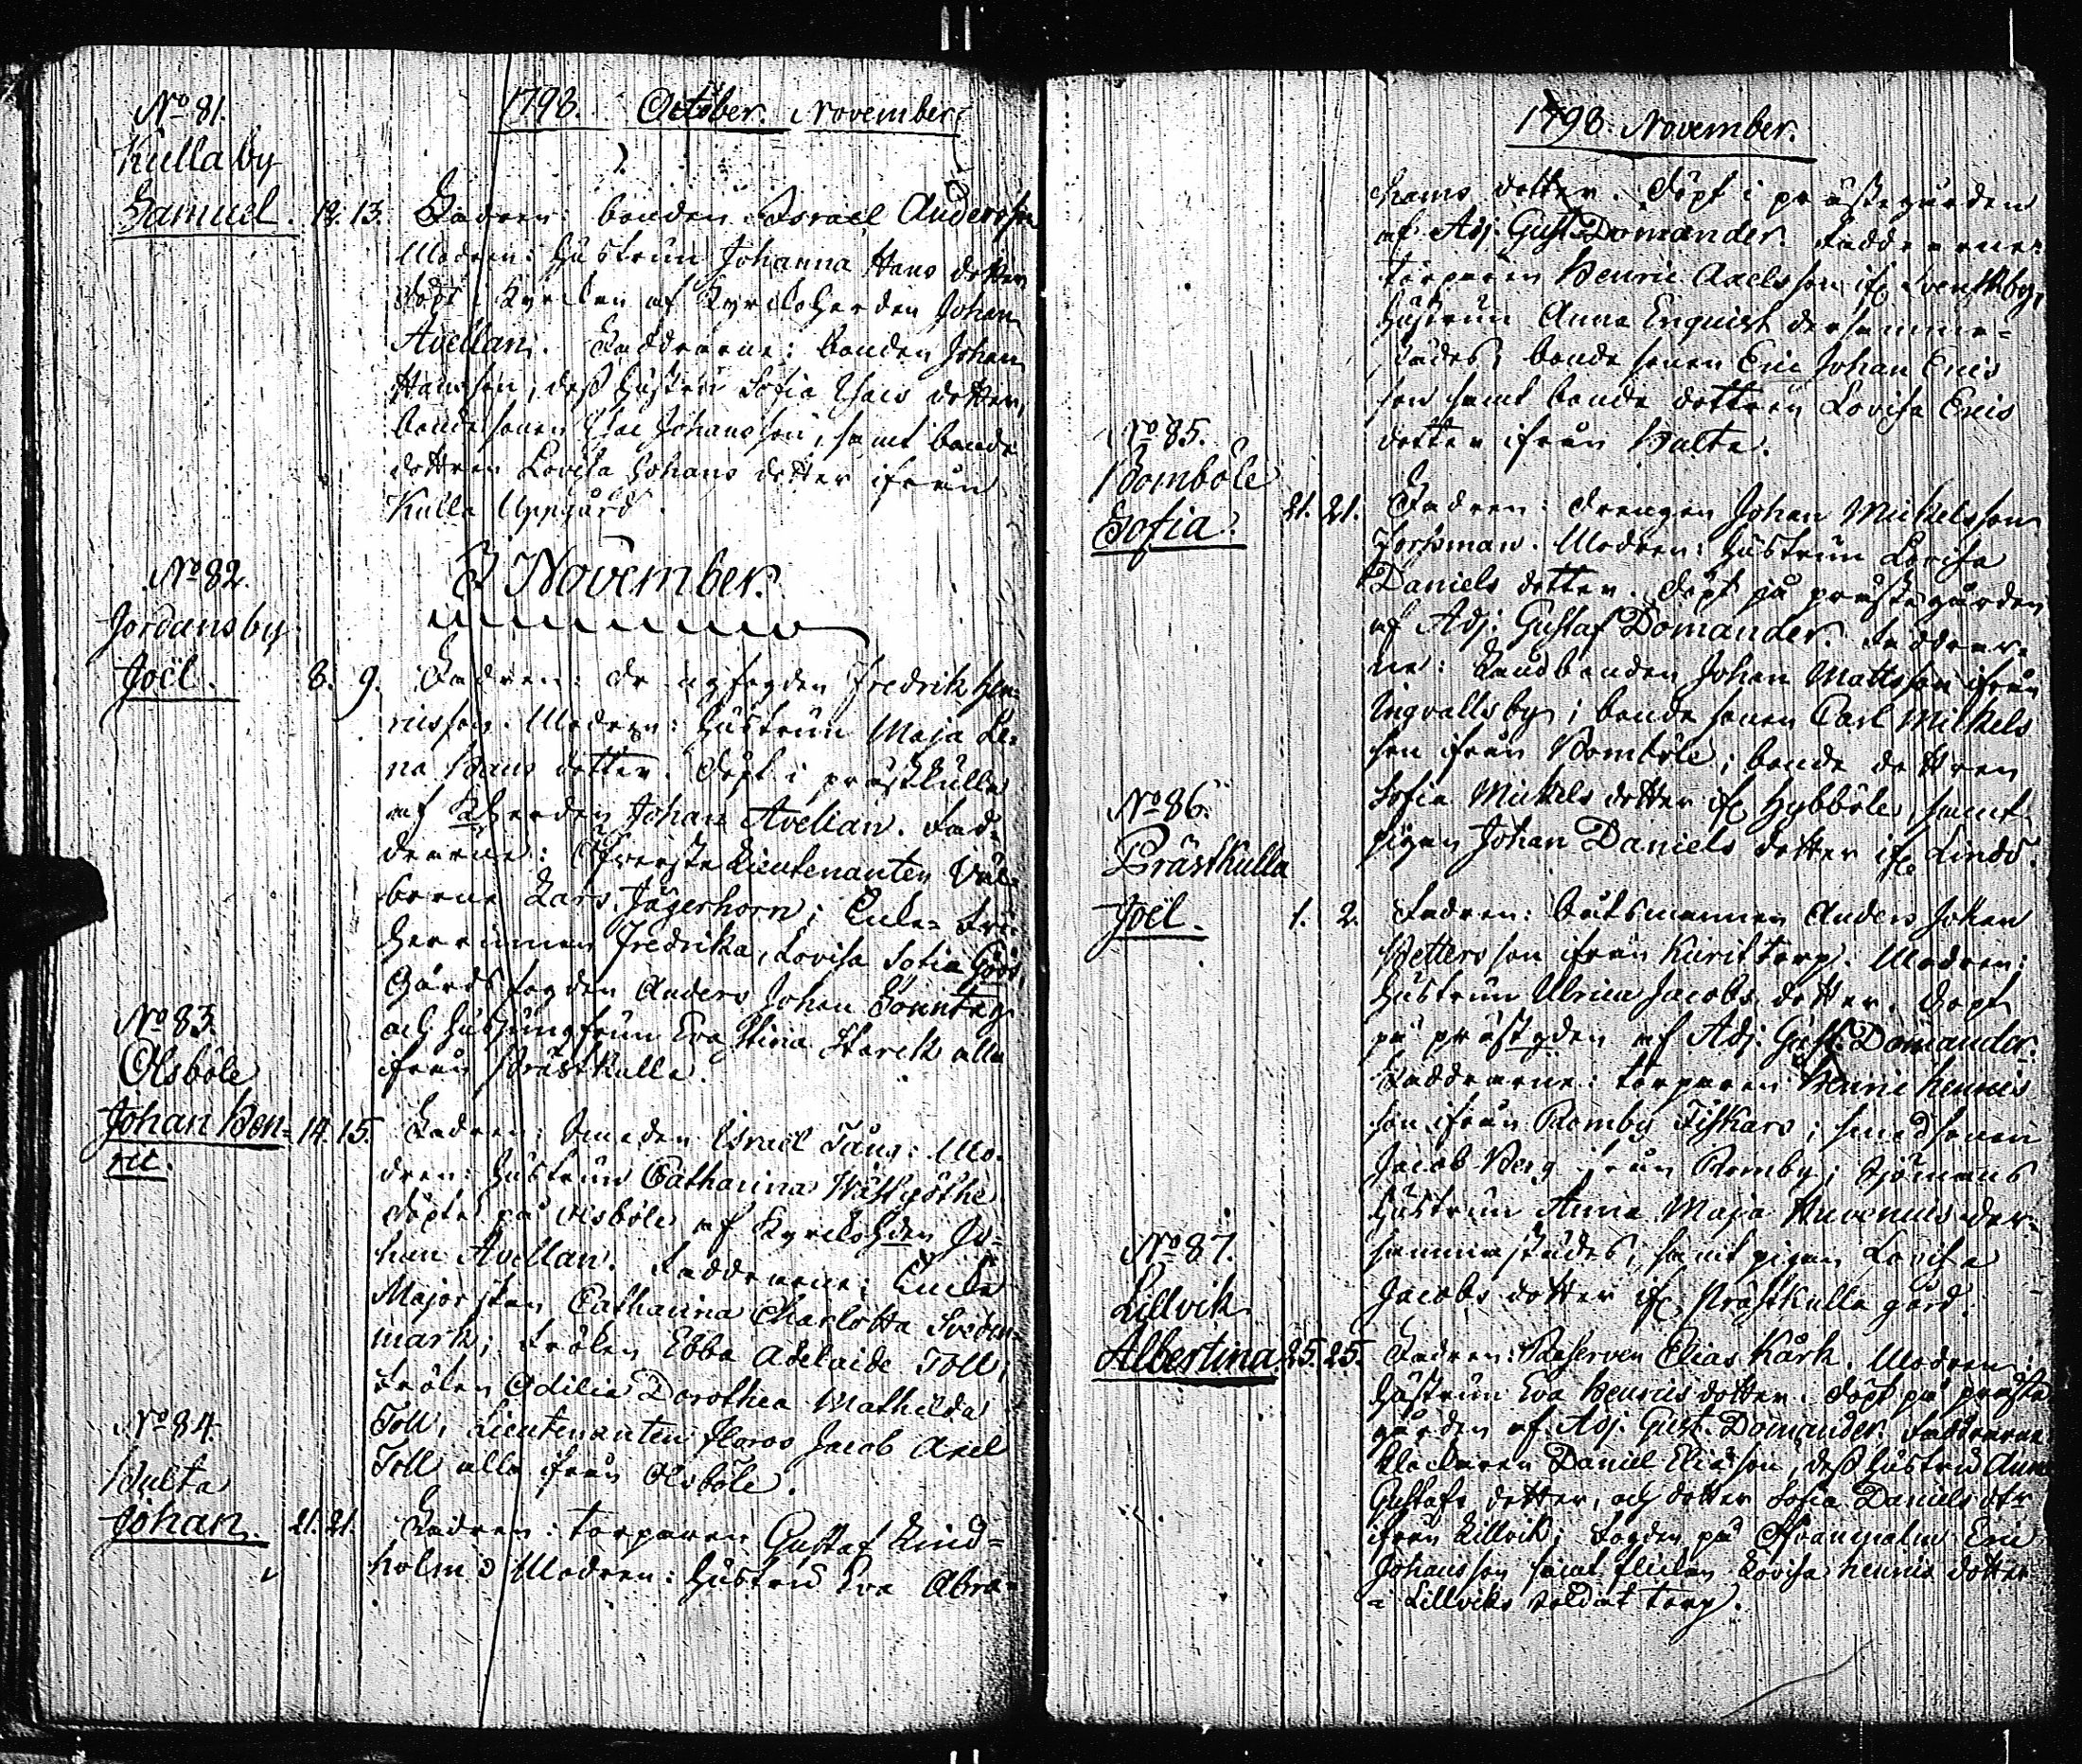 1793. October. November.
No 81.
Kulla by
Samuel. 12. 13. Fadren: bonden Israel Andersson
Modren: hustrun Johanna Hans dotter
döpt i Kyrckan af Kyrckoherden Johan
Avellan. Faddrarne: bonden Johan
Hansson, dess hustru Sofia Isacs dotter,
bonde sonen Isac Johansson, samt bonde
dottren Lovisa Johans dotter ifrån
Kulla Uppgård.
3 November.
No 82.
Jordansby
Joël. 8. 9. Fadren: Fredrik Hen-
ricsson. Modren: hustrun Maja Le-
na Hans dotter. döpt i prästkulla
af Kherden Johan Avellan. Fad-
drarne: Öfverste Lieutenanten Väl-
borne Lars Jägerhorn; Enke- Fri-
herrinnan Fredrika, Lovisa Sofia
Gårds fogden Anders Johan Sonntag
och husjungfrun Eva Stina Starck alla
ifrån Prästkulla.
No 83.
Olsböle
Johan Hen- 14. 15. Fadren: Smeden Israel Tång. Mo-
ric. dren: hustrun Catharina Wästgöthe
döpte på Olsböle af Kyrckohden Jo-
han Avellan. Faddrarne: Enke
Majorskan Catharina Charlotta Svedm-
mark; Fröken Ebba Adelaide Toll;
Fröken Odilia Dorothea Mathilda
Toll, Lieutenanten Jacob Axel
Toll alla ifrån Olsböle.
No 84.
Hulta
Johan. 21. 21. Fadren: torparen Gustaf Lind-
holm Modren: hustru Eva Abra-
1793. November.
hams dotter. Döpt i prästegården
af Adj. Gust. Domander. Faddrarne:
torparen Henric Axelsson if. Svenskby,
hustrun Anna Enquist dersamme-
städes, bonde sonen Eric Johan Erics
son samt bonde dottren Lovisa Erics
dotter ifrån Hulta.
No 85.
Bomböle
Sofia. 21. 21. Fadren: Drengen Johan Mickelsson
Forssman. Modren: hustrun Lovisa
Daniels dotter. döpt på prästegården
af Adj: Gustaf Domander. Faddrar-
ne: Landbonden Johan Mattsson ifrån
Ingvallsby; bonde sonen Carl Mickels
son ifrån Bomböle; bonde dottren
Sofia Mickels dotter if. Hybböle, samt
pigan Johan Daniels dotter if. Lindö.
No 86.
Prästkulla
Joël. 1. 2. Fadren: båtsmannen Anders Johan
Wettersson ifrån torp. Modren:
hustrun Ulrica Jacobs dotter. Döpt
på prästgden af Adj. Gust. Domander.
Faddrarne: torparen Henric Henrics
son ifrån Romby Fiskars; smedsonen
Jacob Berg ifrån Romby; Sjömans
hustrun Anna Maja der-
sammastädes; samt pigan Lovisa
Jacobs dotter if. Prästkulla gård.
No 87.
Lillvik
Albertina 25. 25. Fadren: Reserven Elias Kårk. Modren:
hustrun Eva Henrics dotter. döpt på präste
gården af Adj. Gust. Domander. Faddrarne
klockaren Daniel Eliasson, dess hustru Anna
Gustafs dotter, och dotter Sofia Daniels dtr
ifrån Lillvik; Fogden på Svanmalm Eric
Johansson samt flickan Lovisa Henrics dotter
i Lillviks soldat torp.